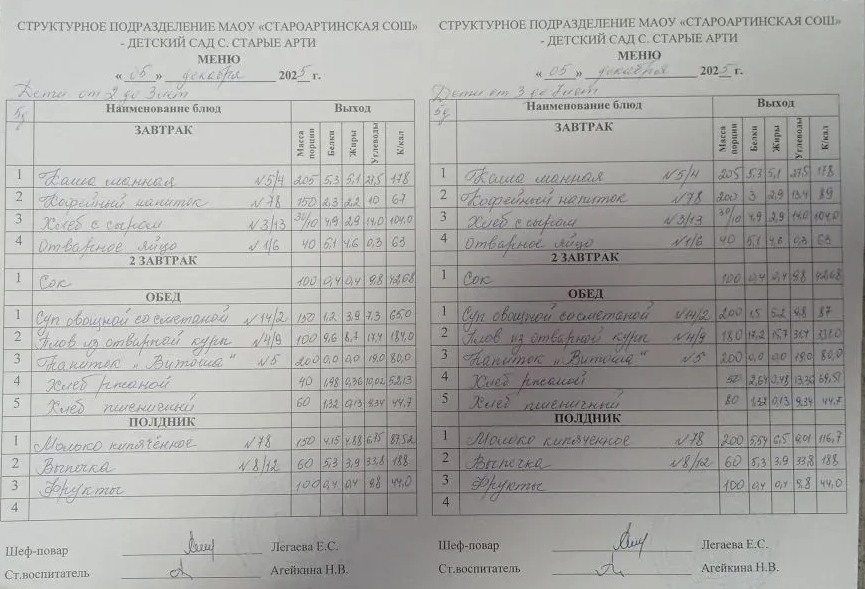 СТРУКТУРНОЕ ПОДРАЗДЕЛЕНИЕ МАОУ «СТАРОАРТИНСКАЯ СОШ»
- ДЕТСКИЙ САД С. СТАРЫЕ АРТИ
МЕНЮ
« 05 » декабря 2025 г.
Дети от 2 до 3 лет
5д Наименование блюд Выход
ЗАВТРАК Масса порции Белки Жиры Углеводы К/кал
1 Каша манная №5/4 205 5,3 5,1 27,5 178
2 Кофейный напиток №78 150 2,3 2,2 10 67
3 Хлеб с сыром №3/13 30/10 4,9 2,9 14,0 104,0
4 Отварное яйцо №1/6 40 5,1 4,6 0,3 63
2 ЗАВТРАК
1 Сок 100 0,4 0,4 9.8 42,68
ОБЕД
1 Суп овощной со сметаной №14/2 150 1,2 3,9 7,3 65,0
2 Плов из отварной куры №4/9 100 9,6 8,7 17,4 184,0
3 Напиток „Витоша" №5 200 0,0 0,0 19,0 80,0
4 Хлеб ржаной 40 1,98 0,36 10,02 52,13
5 Хлеб пшеничный 60 1,32 0,13 9,34 44,7
ПОЛДНИК
1 Молоко кипячённое №78 150 4,15 4,88 6,75 87,52
2 Выпечка №8/12 60 5,3 3,9 33,8 188
3 Фрукты 100 0,4 0,4 9,8 44,0
4
Шеф-повар Легаева Е.С.
Ст.воспитатель Агейкина Н.В.
СТРУКТУРНОЕ ПОДРАЗДЕЛЕНИЕ МАОУ «СТАРОАРТИНСКАЯ СОШ»
- ДЕТСКИЙ САД С. СТАРЫЕ АРТИ
МЕНЮ
« 05 » декабря 2025 г.
Дети от 3 до 8 лет
5д Наименование блюд Выход
ЗАВТРАК Масса порции Белки Жиры Углеводы К/кал
1 Каша манная №5/4 205 5,3 5,1 27,5 178
2 Кофейный напиток №78 200 3 2,9 13,4 89
3 Хлеб с сыром №3/13 30/10 4,9 2,9 14,0 104,0
4 Отварное яйцо №1/6 40 5,1 4,6 0,3 63
2 ЗАВТРАК
1 Сок 100 0,4 0,4 9,8 42,68
ОБЕД
1 Суп овощной со сметаной №14/2 200 1,5 5,2 9,8 87
2 Плов из отварной куры №4/9 180 17,2 15,7
3 Напиток „Витоша" №5 200 0,0 0,0 19,0 80,0
4 Хлеб ржаной 50 2,64 0,48 13,36 69,51
5 Хлеб пшеничный 80 1,32 0,13 9,34 44,7
ПОЛДНИК
1 Молоко кипяченное №78 200 5,54 6,5 9,01 116,7
2 Выпечка №8/12 60 5,3 3,9 33,8 188
3 Фрукты 100 0,4 0,4 9,8 44,0
4
Шеф-повар Легаева Е.С.
Ст.воспитатель Агейкина Н.В.